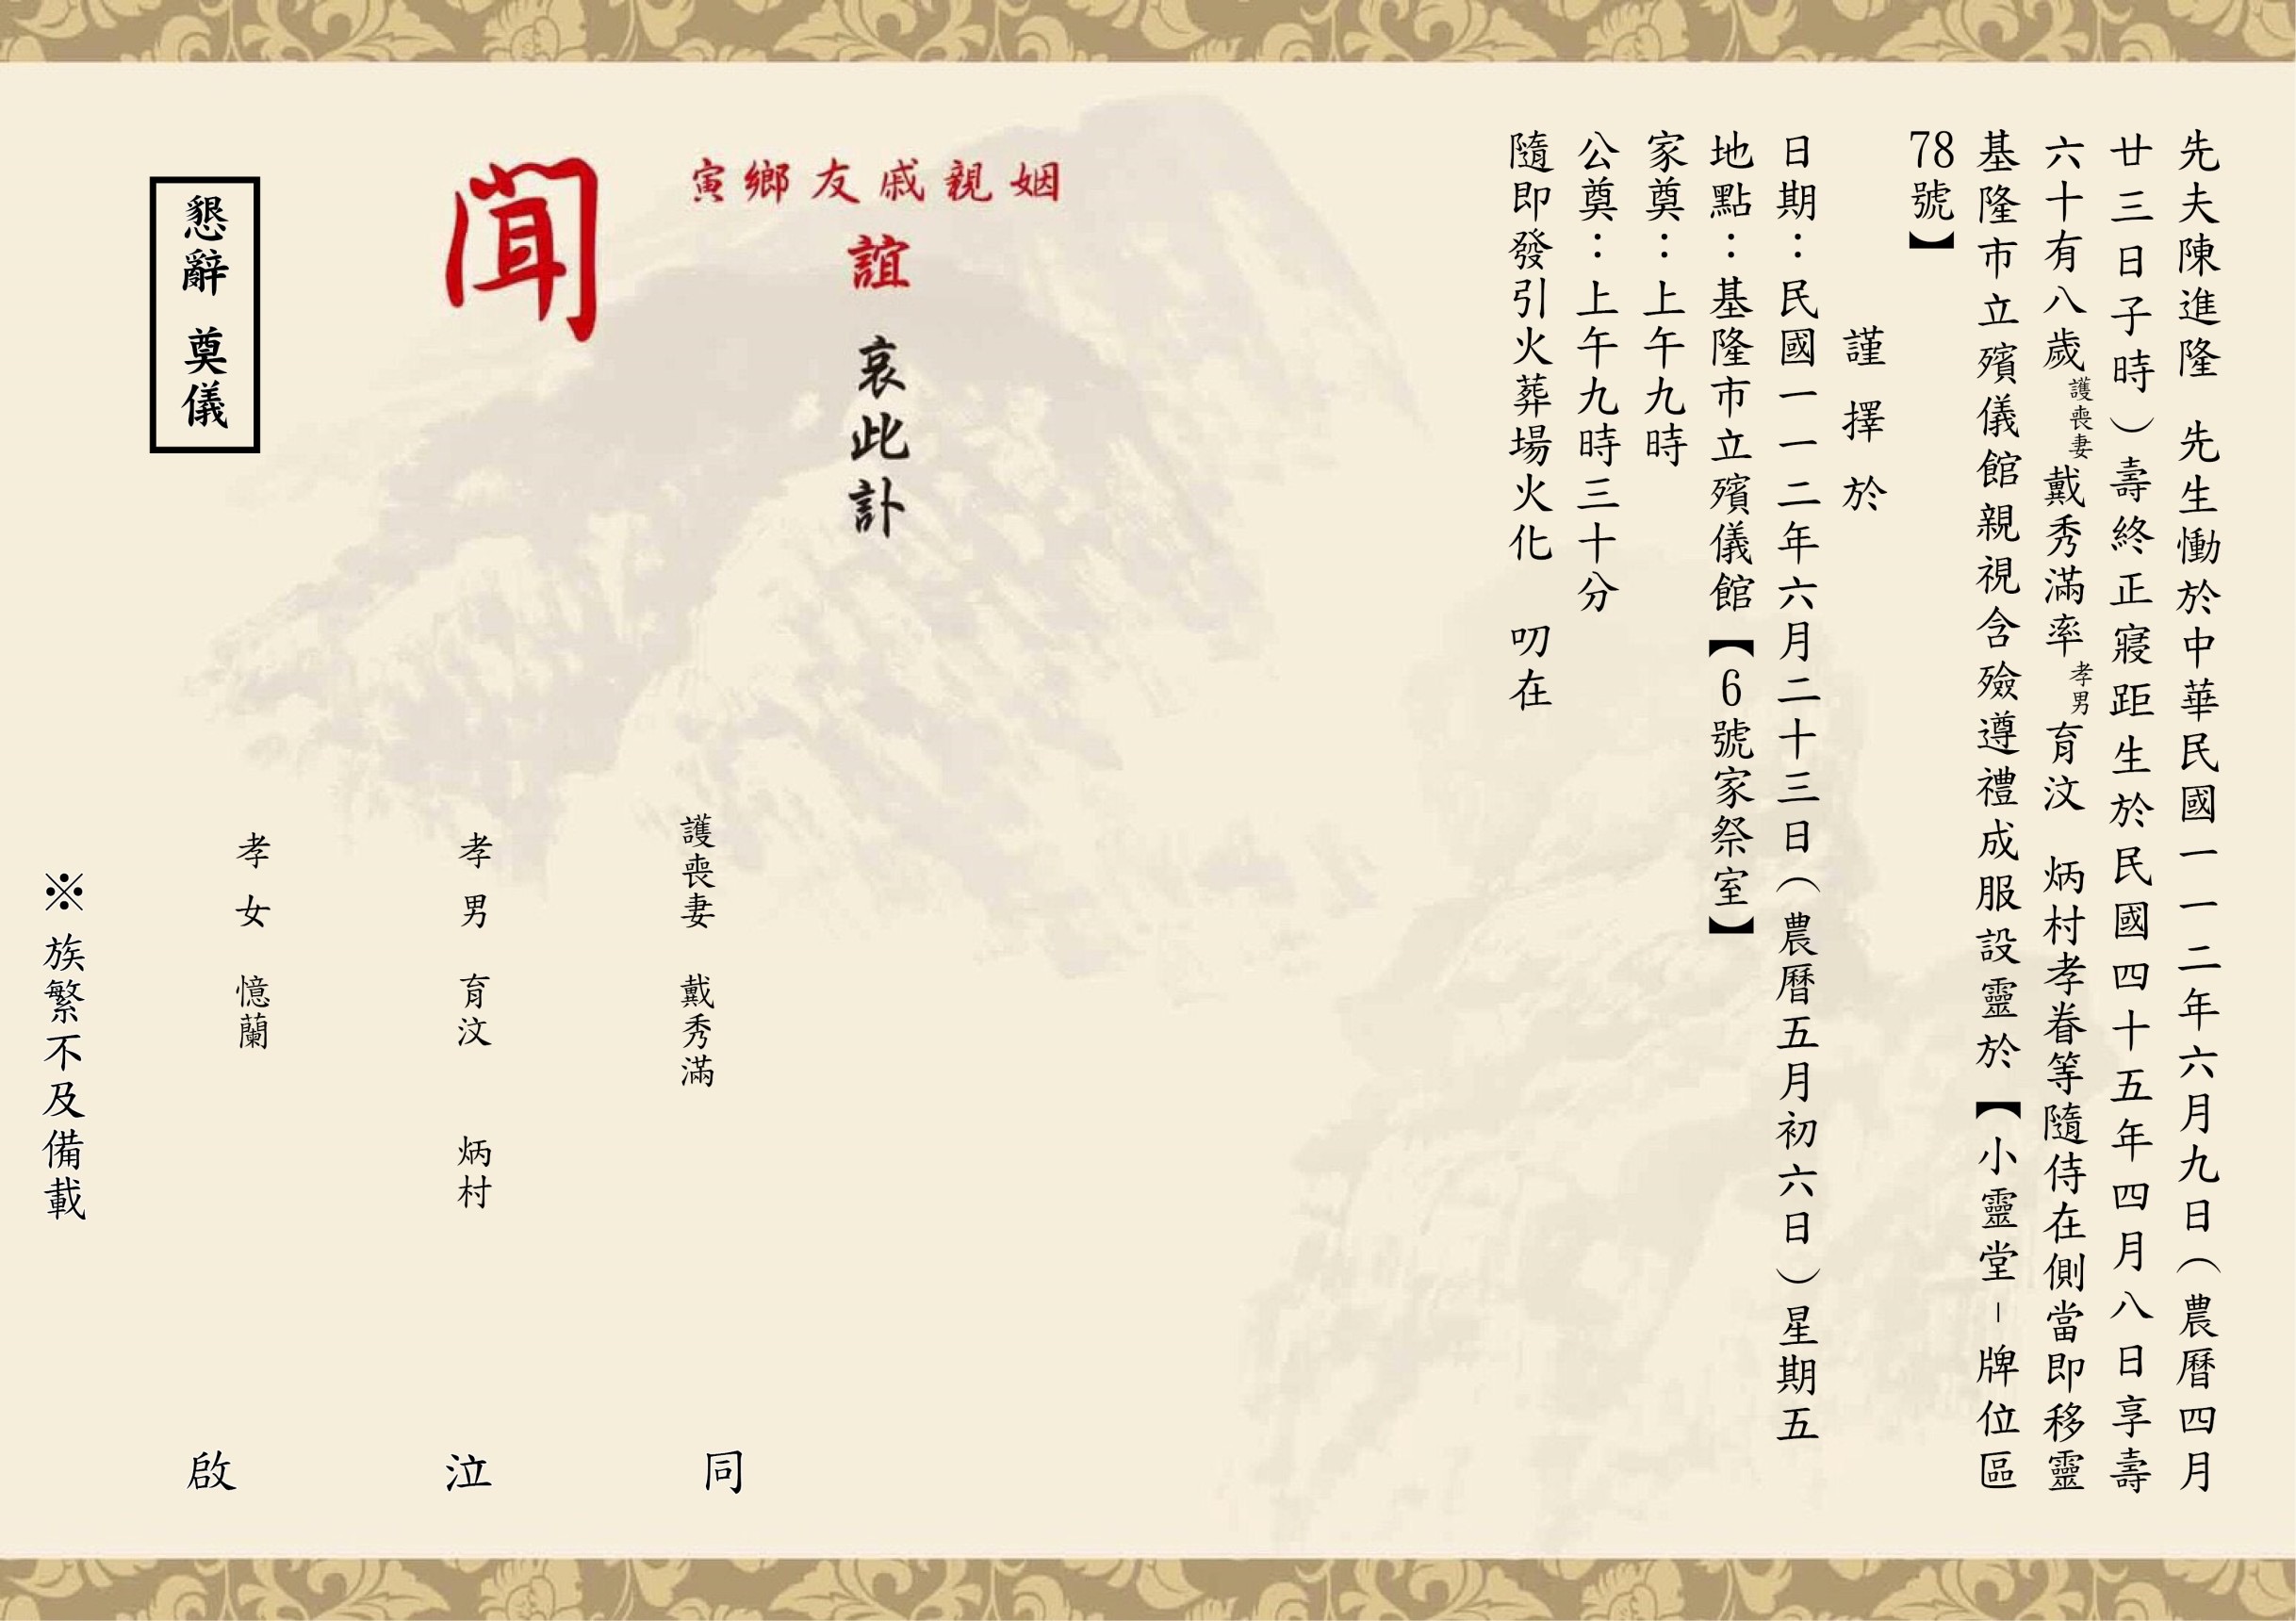 先夫陳進隆 先生慟於中華民國一一二年六月九日（農曆四月
廿三日子時）壽終正寢距生於民國四十五年四月八日享壽
六十有八歲護喪妻戴秀滿率孝男育汶 炳村孝眷等隨侍在側當即移靈
基隆市立殯儀館親視含殮遵禮成服設靈於【小靈堂-牌位區
78號】
謹擇於
日期：民國一一二年六月二十三日（農曆五月初六日）星期五
地點：基隆市立殯儀館【6號家祭室】
家奠：上午九時
公奠：上午九時三十分
隨即發引火葬場火化 叨在
姻親戚友鄉寅
誼 哀此訃
聞
護喪妻 戴秀滿
孝男 育汶 炳村
孝女 憶蘭
同泣啟
懇辭 奠儀
※族繁不及備載